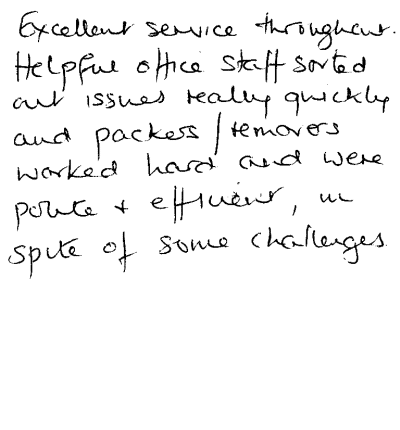 Excellent service throughout.
Helpful office staff sorted
out issues really quickly
and packers/removers
worked hard and were
polite + efficient, in
spite of some challenges